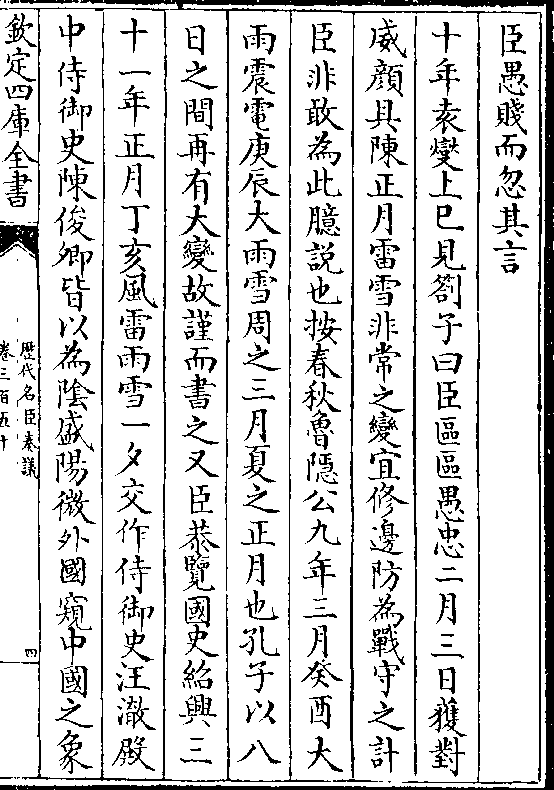 臣愚賤而忽其言
十年袁燮上巳見劄子曰臣區區愚忠二月三日獲對
威顔具陳正月雷雪非常之變宜修邊防為戰守之計
臣非敢為此臆説也按春秋魯隱公九年三月癸酉大
雨震電庚辰大雨雪周之三月夏之正月也孔子以八
日之間再有大變故謹而書之又臣恭覽國史紹興三
十一年正月丁亥風雷雨雪一夕交作侍御史汪澈殿
中侍御史陳俊卿皆以為陰盛陽微外國窺中國之象
欽定四庫全書
歴代名臣奏議
卷三百五十
四